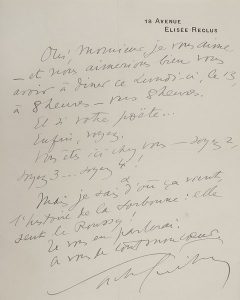 18 AVENUE
ELISÉE RECLUS
Oui, Monsieur, je vous
– et nous aimerions bien vous
avoir à dîner ce Lundi-ci, le 13,
à 8 heures – vers 8 heures.
Et si votre poète...
Enfin, voyez.
Vous êtes ici chez vous – soyez 2,
soyez 3... soyez 4!
Mais je sais d'où ça vient,
l'histoire de la Sorbonne: elle
sent le Roussy!
Je vous en parlerai.
À vous de tout mon cœur.